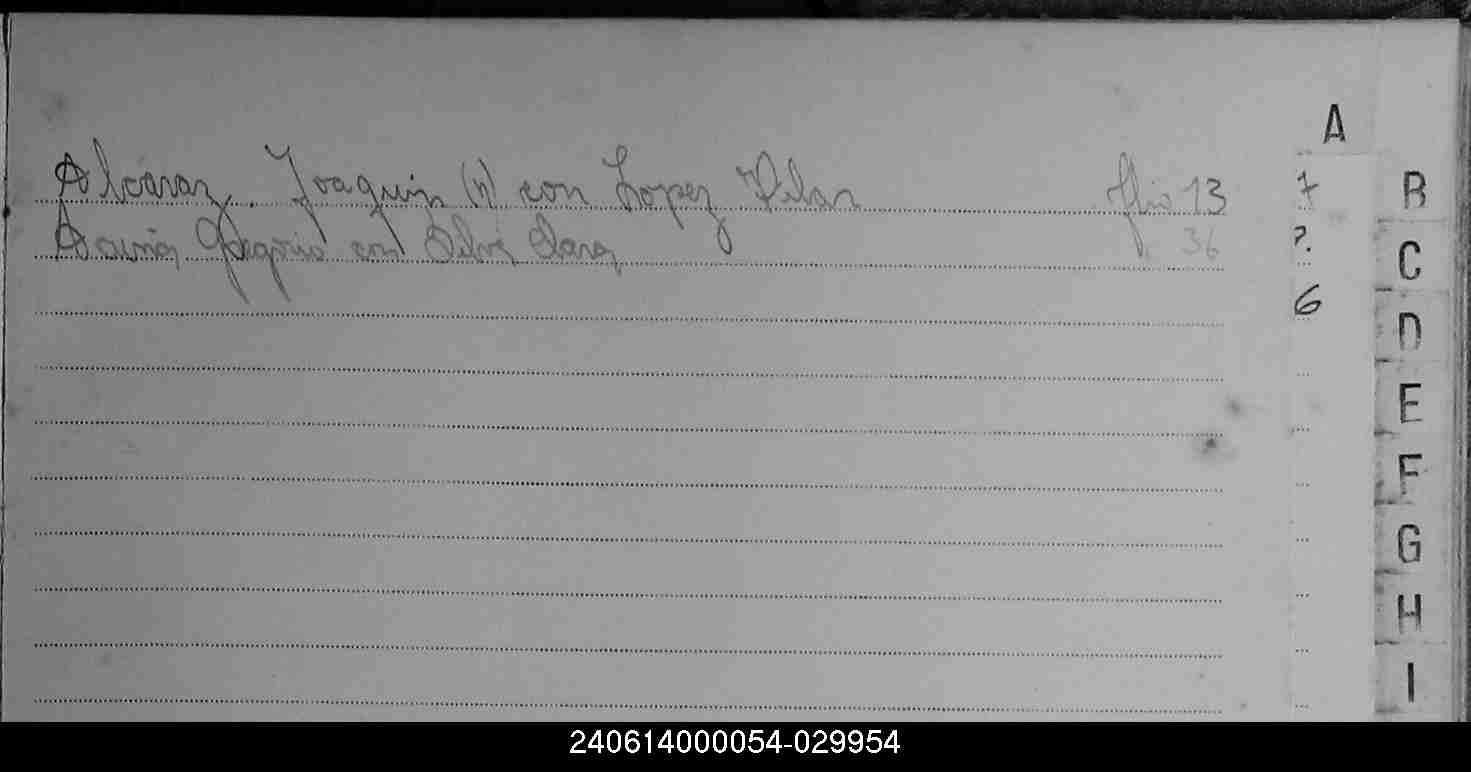 A
Alcaraz, Joaquin (n) con Lopez Pilar flio 13 7 B
Gregorio con Silva Clara 36 ?. C
6 D
E
F
G
H
I
240614000054-029954